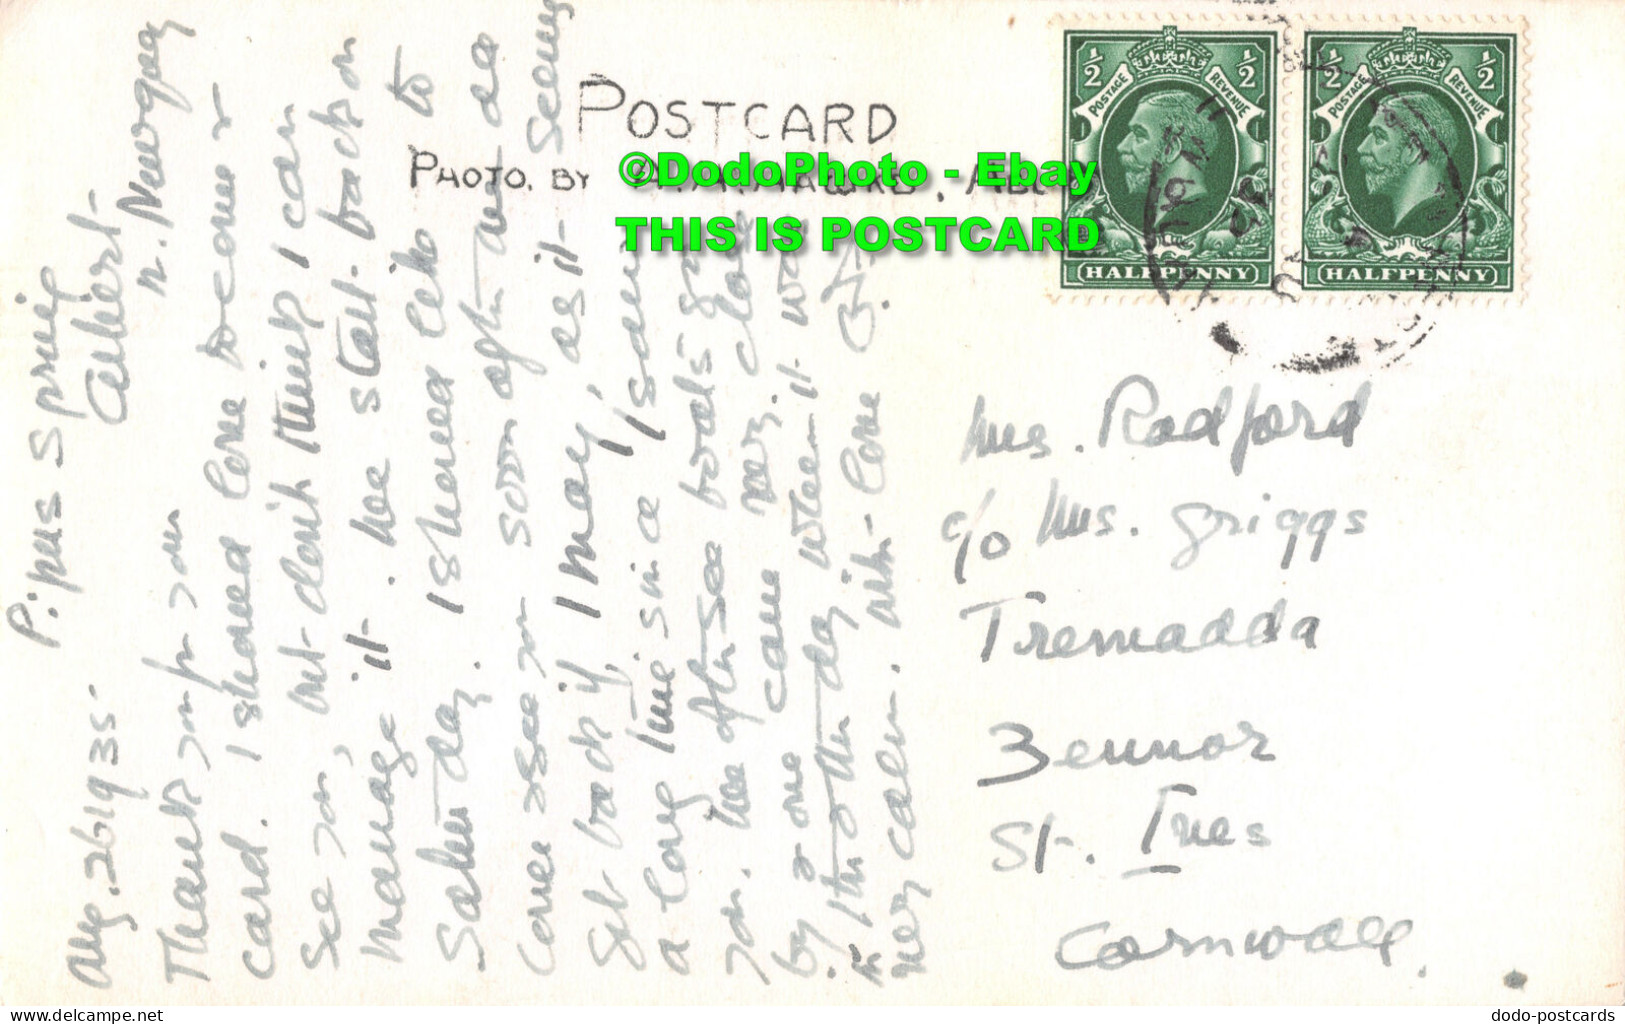 POSTCARD
PHOTO. BY
©DodoPhoto - Ebay
THIS IS POSTCARD
1/2 1/2
POSTAGE REVENUE
HALFPENNY
1/2 1/2
POSTAGE REVENUE
HALFPENNY
Mrs. Radford
c/o Mrs. Griggs
Tremadda
Zennor
St. Ives
Cornwall.
Pipers Spring
Cubert
n. Newquay
Aug. 26 1935
Thank you for your
card. I should love to come &
see you, but don't think I can
manage it. We start back on
Saturday. I should like to
come & see you soon after we
get back if I may, as it seems
a long time since I saw
you. We
by one came very close
other day when it was
very calm. With love
Sold by dodo-postcards on Delcampe.net
dodo-postcards